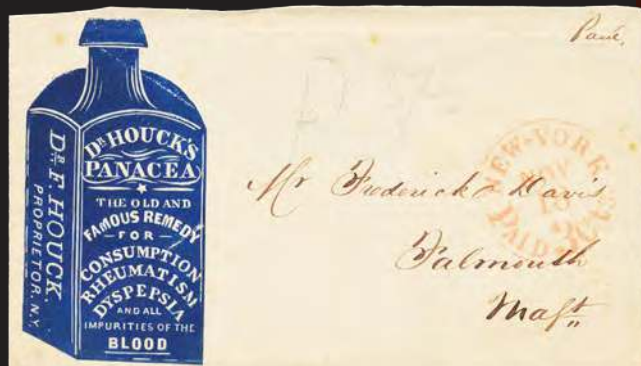 Paid.
Dr. F. HOUCK.
PROPRIETOR. N.Y.
DR HOUCK'S
PANACEA
THE OLD AND
FAMOUS REMEDY
FOR
CONSUMPTION
RHEUMATISM
DYSPEPSIA
AND ALL
IMPURITIES OF THE
BLOOD
NEW-YORK
NOV
PAID 3 CTS
Mr Frederick Davis
Falmouth
Masst